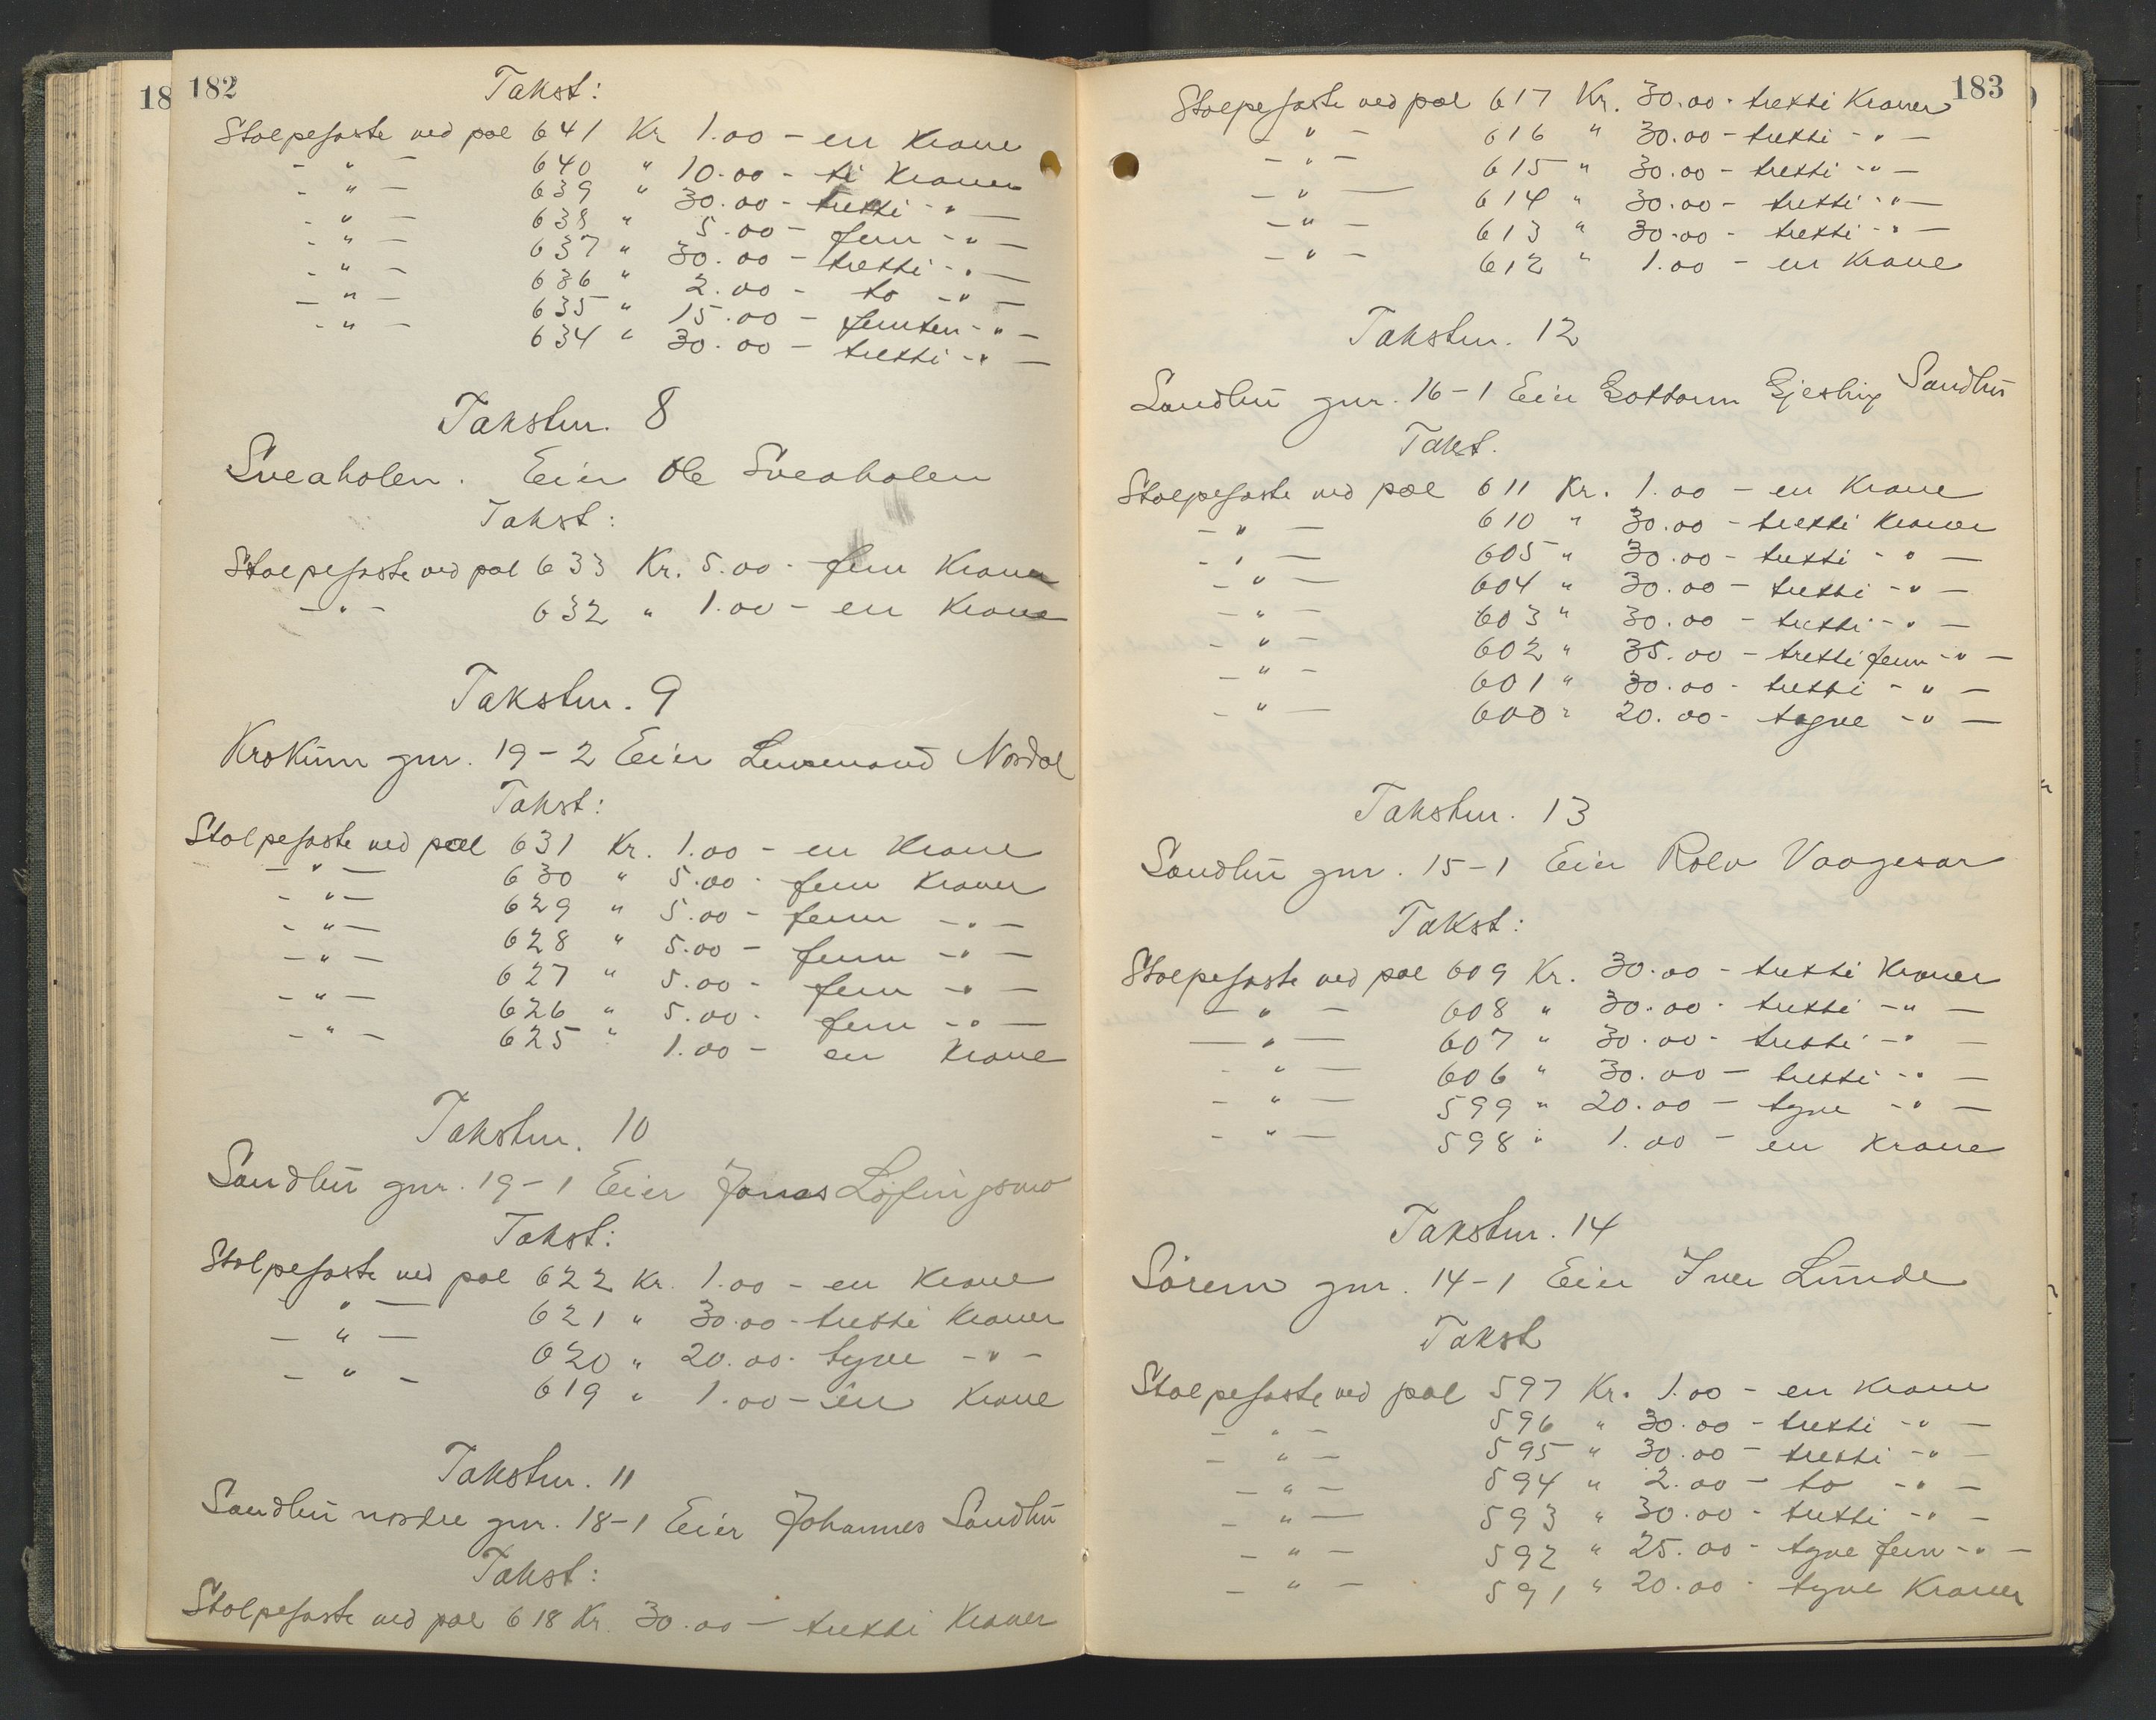 182
Takst:
Stolpefaste ved pæl 641 Kr 1.00 - en Krone
- " - 640 " 10.00 - ti Kroner
- " - 639 " 30.00 - tretti - " -
- " - 638 " 5.00 - fem - " -
- " - 637 " 30.00 - tretti - " -
- " - 636 " 2.00 - to - " -
- " - 635 " 15.00 - femten - " -
- " - 634 " 30.00 - tretti - " -
Takstnr. 8
Sveaholen. Eier Ole Sveaholen
Takst:
Stolpefaste ved pæl 633 Kr. 5.00 - fem Kroner
- " - 632 " 1.00 - en Krone
Takstnr. 9
Krokum gnr. 19-2 Eier Lensmand Nordal
Takst:
Stolpefaste ved pæl 631 Kr. 1.00 - en Krone
- " - 630 " 5.00 - fem Kroner
- " - 629 " 5.00 - fem - " -
- " - 628 " 5.00 - fem - " -
- " - 627 " 5.00 - fem - " -
- " - 626 " 5.00 - fem - " -
- " - 625 " 1.00 - en Krone
Takstnr. 10
Sandbu gnr. 19-1 Eier Jonas Løftingsmo
Takst:
Stolpefaste ved pæl 622 Kr. 1.00 - en Krone
" - 621 " 30.00 - tretti Kroner
- " - 620 " 20.00 - tyve - " -
- " - 619 " 1.00 - en Krone
Takstnr. 11
Sandbu nordre gnr. 18-1 Eier Johannes Sandbu
Takst:
Stolpefaste ved pæl 618 Kr. 30.00 - tretti Kroner
183
Stolpefaste ved pæl 617 Kr. 30.00 - tretti Kroner
" - 616 " 30.00 - tretti - " -
- " - 615 " 30.00 - tretti - " -
- " - 614 " 30.00 - tretti - " -
- " - 613 " 30.00 - tretti - " -
- " - 612 " 1.00 - en Krone
Takstnr. 12
Sandbu gnr. 16-1 Eier Gottorm Sandbu
Takst.
Stolpefaste ved pæl 611 Kr. 1.00 - en Krone
- " - 610 " 30.00 - tretti Kroner
- " - 605 " 30.00 - tretti - " -
- " - 604 " 30.00 - tretti - " -
- " - 603 " 30.00 - tretti - " -
- " - 602 " 35.00 - trettifem - " -
- " - 601 " 30.00 - tretti - " -
- " - 600 " 20.00 - tyve - " -
Takstnr. 13
Sandbu gnr. 15-1 Eier Rolv Vaagesar
Takst:
Stolpefaste ved pæl 609 Kr. 30.00 - tretti Kroner
- " - 608 " 30.00 - tretti - " -
- " - 607 " 30.00 - tretti - " -
- " - 606 " 30.00 - tretti - " -
- " - 599 " 20.00 - tyve - " -
- " - 598 " 1.00 - en Krone
Takstnr. 14
Sørem gnr. 14-1 Eier Iver Lunde
Takst
Stolpefaste ved pæl 597 Kr. 1.00 - en Krone
- " - 596 " 30.00 - tretti - " -
- " - 595 " 30.00 - tretti - " -
- " - 594 " 2.00 - to - " -
- " - 593 " 30.00 - tretti - " -
- " - 592 " 25.00 - tyve fem - " -
- " - 591 " 20.00 - tyve Kroner